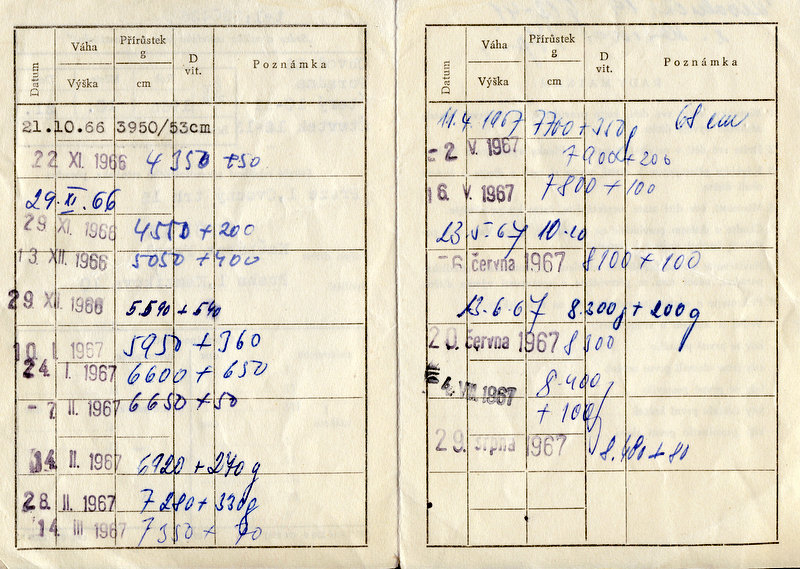 Datum
Váha
Výška
Přírůstek
g
cm
D
vit.
Poznámka
21.10.66 3950/53cm
22 XI. 1966 4350 +50
29. XI. 66
29 XI. 1966 4550 + 200
13. XII. 1966 5050 + 400
29 XII. 1966 5.590 + 540
10. I. 1967 5950 + 360
24. I. 1967 6600 + 650
- 7. II. 1967 6650 + 50
14. II. 1967 6920 + 270 g
28. II. 1967 7280 + 330g
14. III 1967 7350 + 70
Datum
Váha
Výška
Přírůstek
g
cm
D
vit.
Poznámka
11.4. 1967 7700 + 350g 68 cm
- 2 V. 1967 7900 + 200
16. V. 1967 7800 + 100
23. 5. 67
- 6 června 1967 8100 + 100
13.6.67 8.300g + 200g
20. června 1967 8300
4. VIII. 1967 8.400g
+ 100g
29. srpna 1967 8.480 + 80